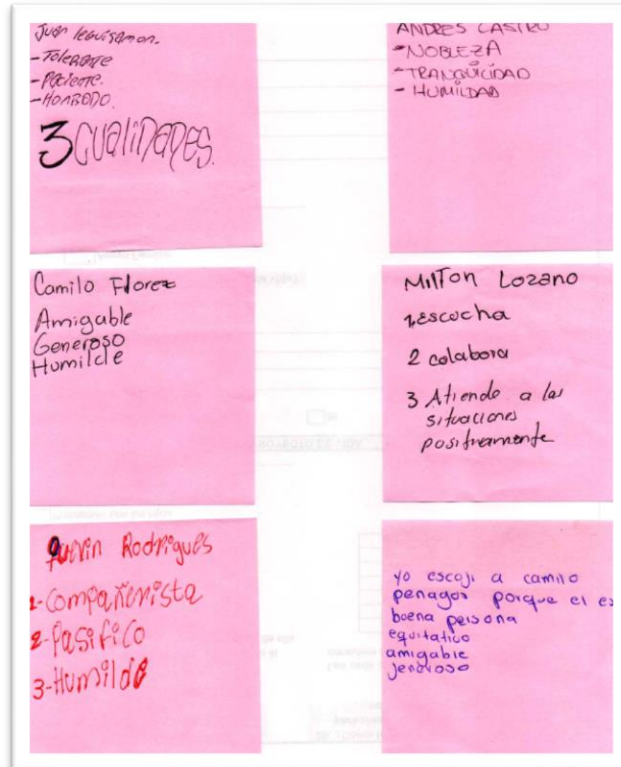 Juan leguisamon.
-Tolerante
-Paciente.
-HONRADO.
3 CUALIDADES.
ANDRES CASTRO
-NOBLEZA
-TRANQUILIDAD
- HUMILDAD
Camilo Florez
Amigable
Generoso
Humilde
Milton Lozano
1 escucha
2 colabora
3 Atiende a las
situaciones
positivamente
Rodrigues
1-Compañerista
2-Pasifico
3-Humilde
yo escoji a camilo
penagos porque el es
boena persona
equitatico
amigable
jeneroso